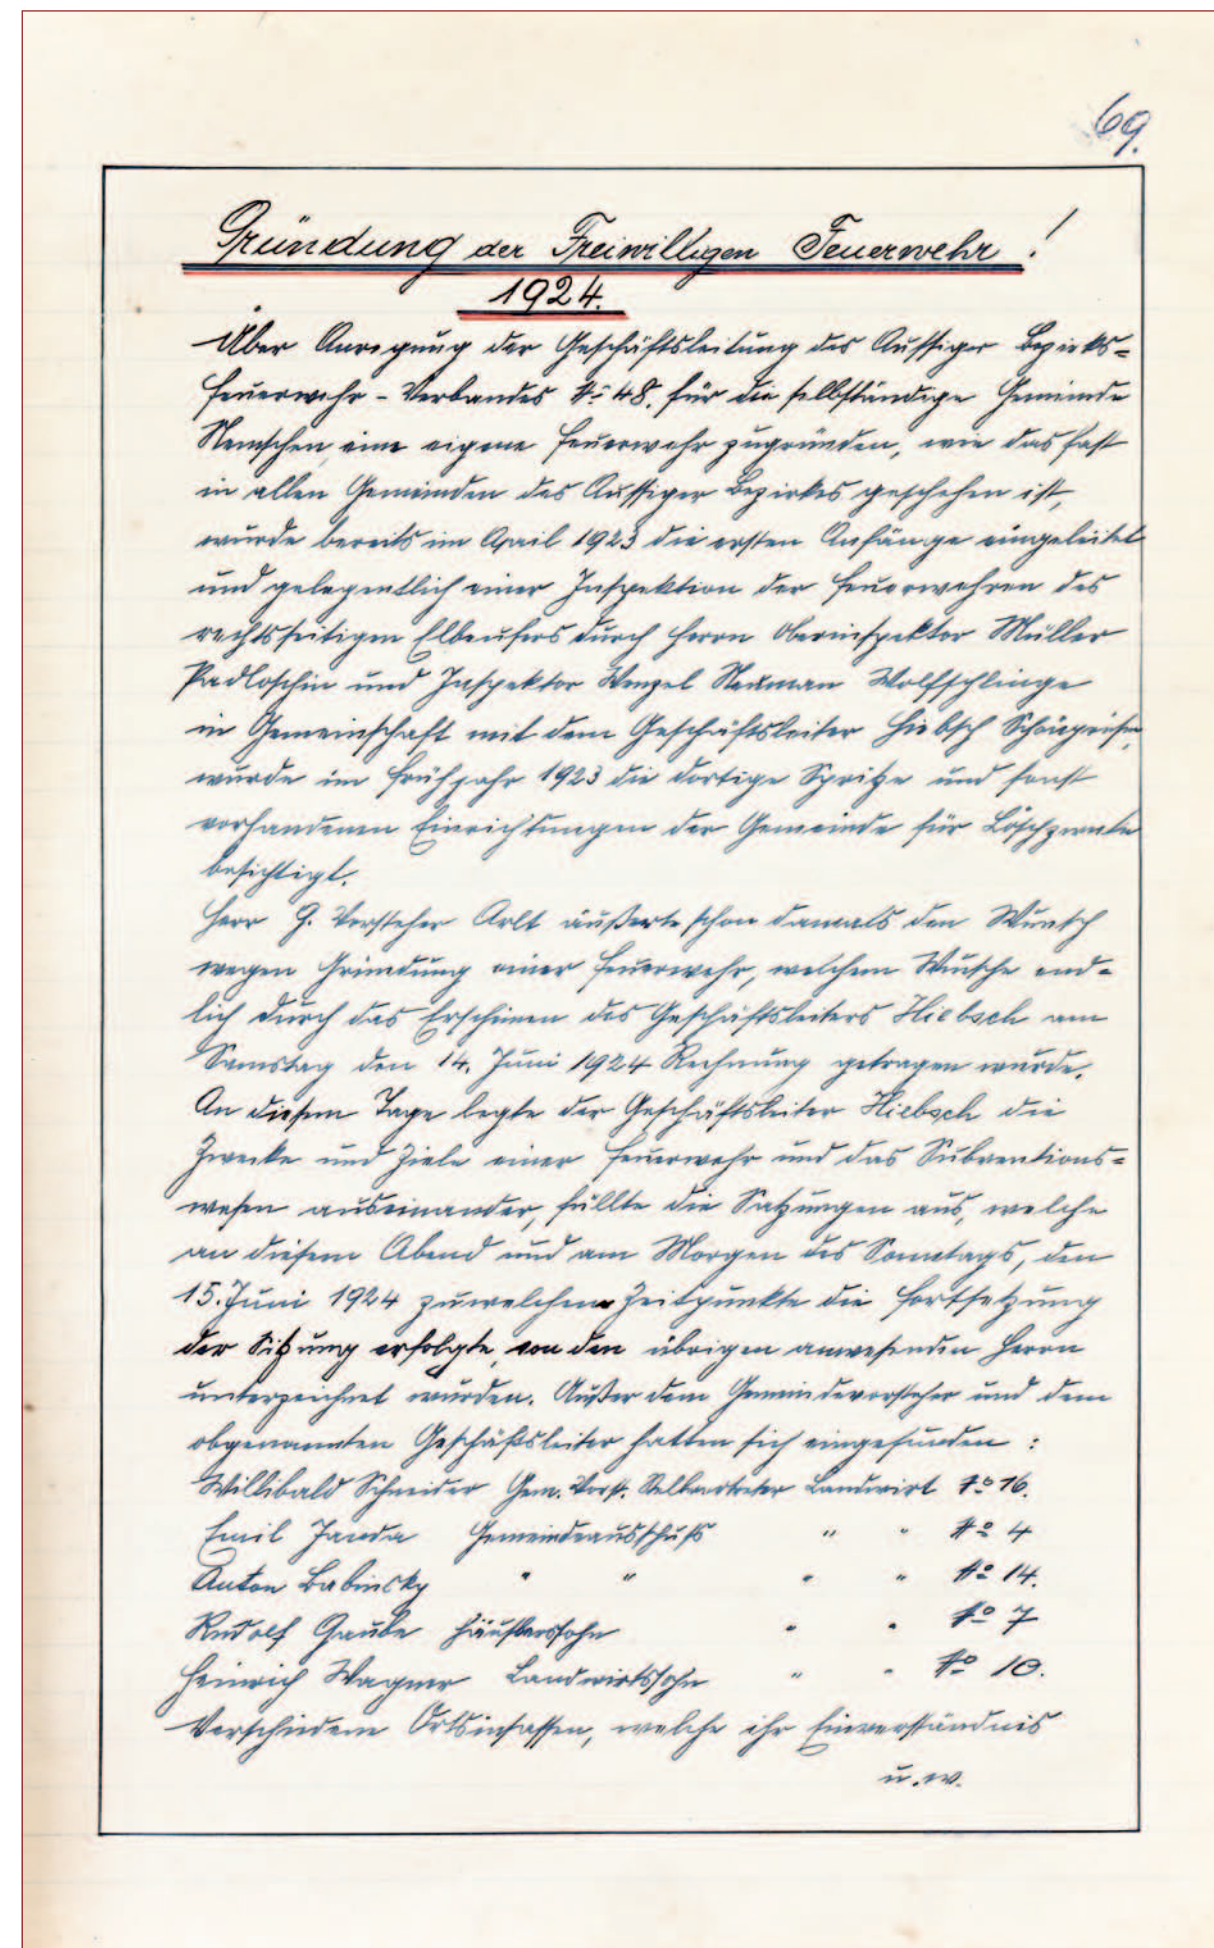 69.
Gründung der Freiwilligen Feuerwehr!
1924.
Über Anregung der Geschäftsleitung des Aussiger Bezirks-
feuerwehr-Verbandes No 48. für die selbständige Gemeinde
Nemschen eine eigene Feuerwehr zugründen, wie das fast
in allen Gemeinden des Aussiger Bezirkes geschehen ist,
wurde bereits im April 1923 die ersten Anfänge eingeleitet
und gelegentlich einer Inspektion der Feuerwehren des
rechtsseitigen Elbeufers durch Herrn Oberinspektor Müller
Padloschin und Inspektor Wenzel Neuman Wolfschlinge
in Gemeinschaft mit dem Geschäftsleiter Hiebsch Schönpriesen,
wurde im Frühjahr 1923 die dortige Spritze und sonst
vorhandenen Einrichtungen der Gemeinde für Löschzwecke
besichtigt.
Herr G. Vorsteher Arlt äußerte schon damals den Wunsch
wegen Gründung einer Feuerwehr, welchem Wunsche end-
lich durch das Erscheinen des Geschäftsleiters Hiebsch am
Samstag den 14. Juni 1924 Rechnung getragen wurde.
An diesem Tage legte der Geschäftsleiter Hiebsch die
Zwecke und Ziele einer Feuerwehr und das Subventions-
wesen auseinander, füllte die Satzungen aus, welche
an diesem Abend und am Morgen des Sonntags, den
15. Juni 1924 zuwelchem Zeitpunkte die Fortsetzung
der Sitzung erfolgte, von den übrigen anwesenden Herrn
unterzeichnet wurden. Außer dem Gemeindevorsteher und dem
obgenannten Geschäftsleiter hatten sich eingefunden:
Willibald Schneider Gem. Vorst. Stellvertreter Landwirt No 16.
Emil Janda Gemeindeausschuß " " No 4
Anton Babinsky " " " " No 14.
Rudolf Gaube Häuslerssohn " " No 7
Heinrich Wagner Landwirtssohn " " No 10.
Verschiedene Ortsinsassen, welche ihr Einverständnis
u. w.